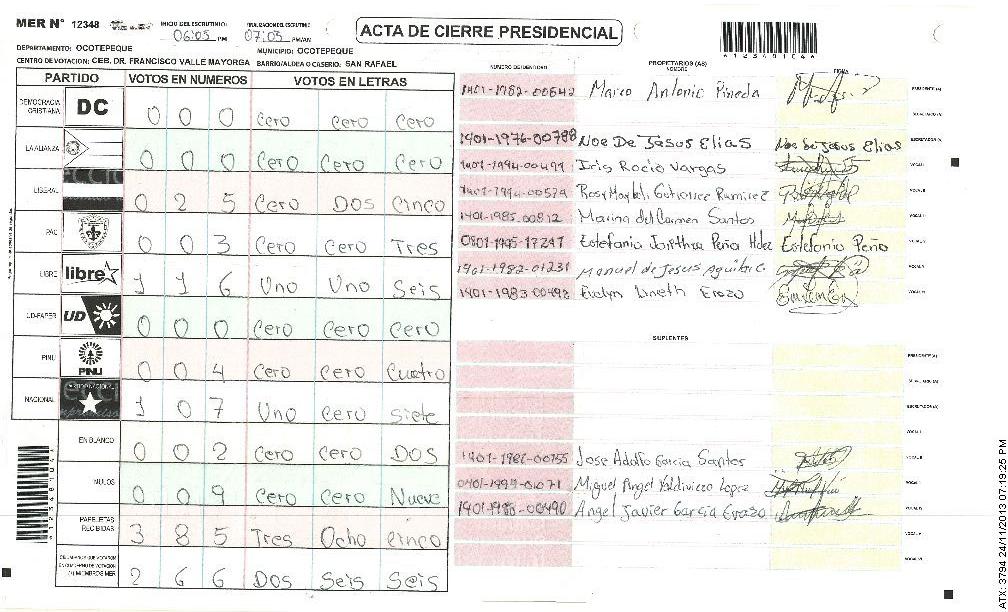 MER N° 12348
INICIO DEL ESCRUTINIO: 06:05 PM
FINALIZACION DEL ESCRUTINIO 07:05 PM/AM
ACTA DE CIERRE PRESIDENCIAL
DEPARTAMENTO: OCOTEPEQUE MUNICIPIO: OCOTEPEQUE
CENTRO DE VOTACION: CEB. DR. FRANCISCO VALLE MAYORGA BARRIO/ALDEA O CASERIO: SAN RAFAEL
PARTIDO VOTOS EN NUMEROS VOTOS EN LETRAS
DEMOCRACIA CRISTIANA DC 0 0 0 Cero Cero Cero
LA ALIANZA 0 0 0 Cero Cero Cero
LIBERAL 0 2 5 Cero Dos Cinco
PAC 0 0 3 Cero Cero Tres
LIBRE libre 1 1 6 Uno Uno Seis
UD-FAPER UD 0 0 0 Cero Cero Cero
PINU PINU 0 0 4 Cero Cero Cuatro
NACIONAL 1 0 7 Uno Cero Siete
EN BLANCO 0 0 2 Cero Cero Dos
NULOS 0 0 9 Cero Cero Nueve
PAPELETAS RECIBIDAS 3 8 5 Tres Ocho Cinco
2 6 6 Dos Seis Seis
NUMERO DE IDENTIDAD PROPIETARIOS (AS) NOMBRE FIRMA
1401-1982-00642 Marco Antonio Pineda PRESIDENTE (A)
SECRETARIO (A)
1401-1976-00788 Noe De Jesus Elias Noe De Jesus Elias ESCRUTADOR (A)
1401-1994-00499 Iris Rocio Vargas VOCAL I
1401-1994-00579 VOCAL II
1401-1985-00812 Marina del Carmen Santos
0801-1995-17247 Estefania Peña Hdez Estefania Peña
1401-1982-01231 Manuel de Jesus
1401-1983-00498 Evelyn Lineth Erazo
SUPLENTES
PRESIDENTE (A)
SECRETARIO (A)
ESCRUTADOR (A)
VOCAL I
Jose Adolfo Garcia Santos
0401-1999-01071 Miguel Angel Valdiviezo Lopez
1401-1988-00490 Angel Javier Garcia Erazo
ATX: 3794 24/11/2013 07:19:25 PM